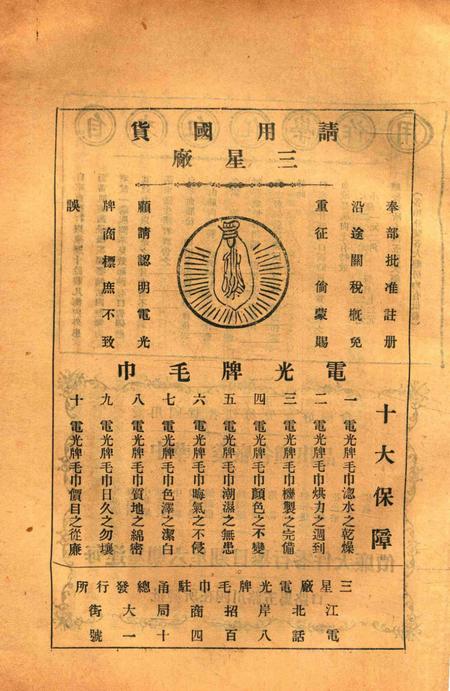 請用國貨
三星廠
奉部批准註册
沿途關稅概免
重征 倘蒙賜
顧請認明電光
牌商標庶不致
誤
電光牌毛巾
十大保障
一 電光牌毛巾濾水之乾燥
二 電光牌毛巾烘力之週到
三 電光牌毛巾機製之完備
四 電光牌毛巾顏色之不變
五 電光牌毛巾潮濕之無患
六 電光牌毛巾晦氣之不侵
七 電光牌毛巾色澤之潔白
八 電光牌毛巾質地之綿密
九 電光牌毛巾日久之勿壞
十 電光牌毛巾價目之從廉
三星廠電光牌毛巾駐甬總發行所
江北岸招商局大街
電話八百四十一號